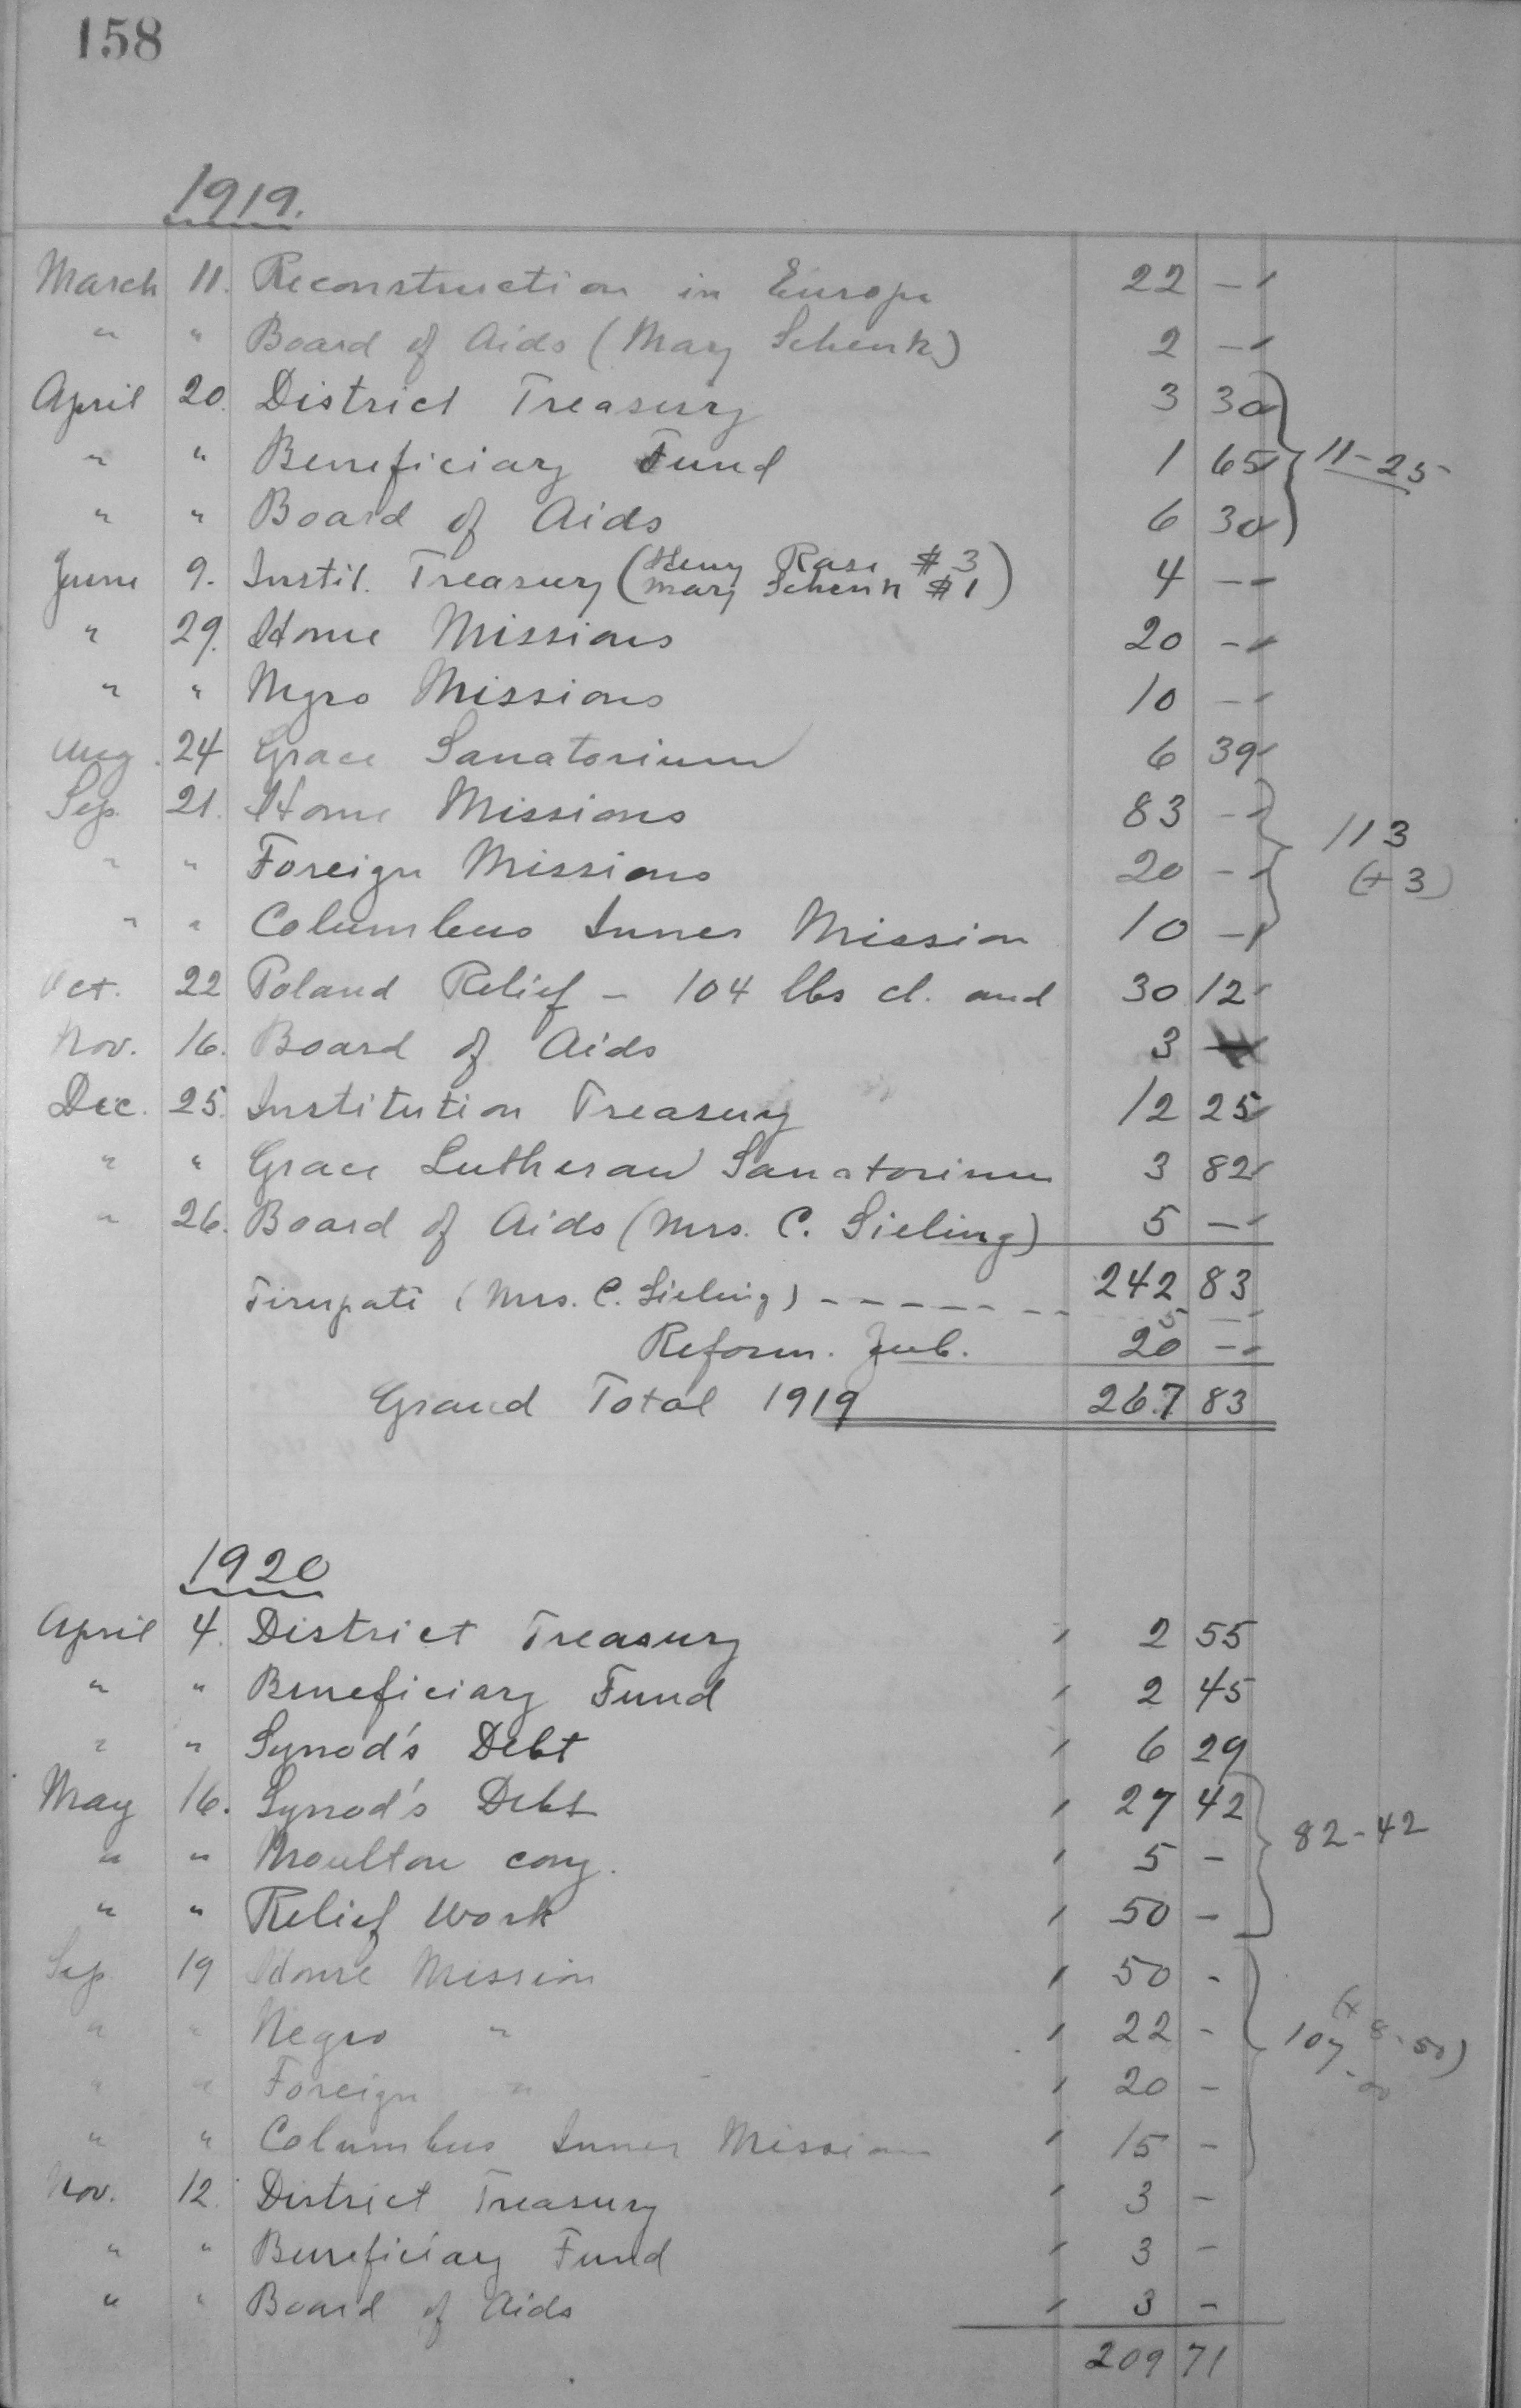 158
1919.
March 11. Reconstruction in Europe 22 –
" " Board of Aids (Mary Schenk) 2 –
April 20. District Treasury 3 30
" " Beneficiary Fund 1 65 11-25
" " Board of Aids 6 30
June 9. Instit. Treasury (Henry Rase $3 Mary Schenk $1) 4 –
" 29. Home Missions 20 –
" " Negro Missions 10 –
Aug. 24 Grace Sanatorium 6 39
Sep. 21. Home Missions 83 –
113
" " Foreign Missions 20 – (+3)
" " Columbus Inner Mission 10 –
Oct. 22 Poland Relief – 104 lbs cl. and 30 12
Nov. 16. Board of Aids 3 –
Dec. 25. Institution Treasury 12 25
" " Grace Lutheran Sanatorium 3 82
" 26. Board of Aids (Mrs. C. Sieling) 5 –
242 83
Tirupati (Mrs. C. Sieling) – – – – – – – 5 –
Reform. Jub. 20 –
Grand Total 1919 267 83
1920
April 4. District Treasury 2 55
" " Beneficiary Fund 2 45
" " Synod's Debt 6 29
May 16. Synod's Debt 27 42
" " Moulton cong. 5 – 82-42
" " Relief Work 50 –
Sep 19 Home Mission 50 –
" " Negro " 22 – 107 (+ 8-50)
" " Foreign " 20 –
" " Columbus Inner Mission 15 –
Nov. 12. District Treasury 3 –
" " Beneficiary Fund 3 –
" " Board of Aids 3 –
209 71